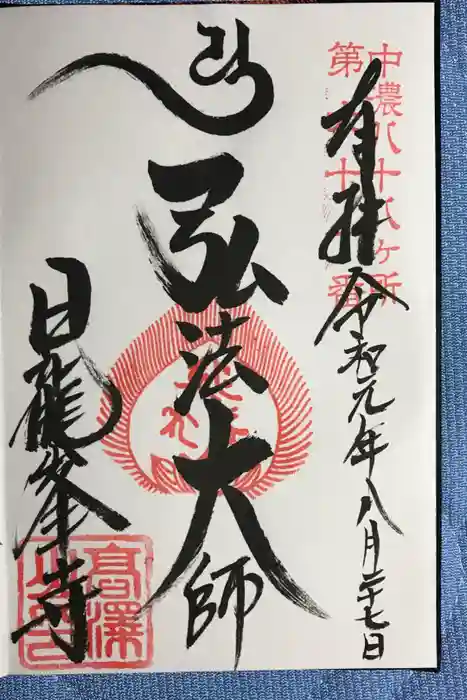 中濃八十八ヶ所
奉拝 令和元年八月二十七日
弘法大師
日龍峯寺
高澤